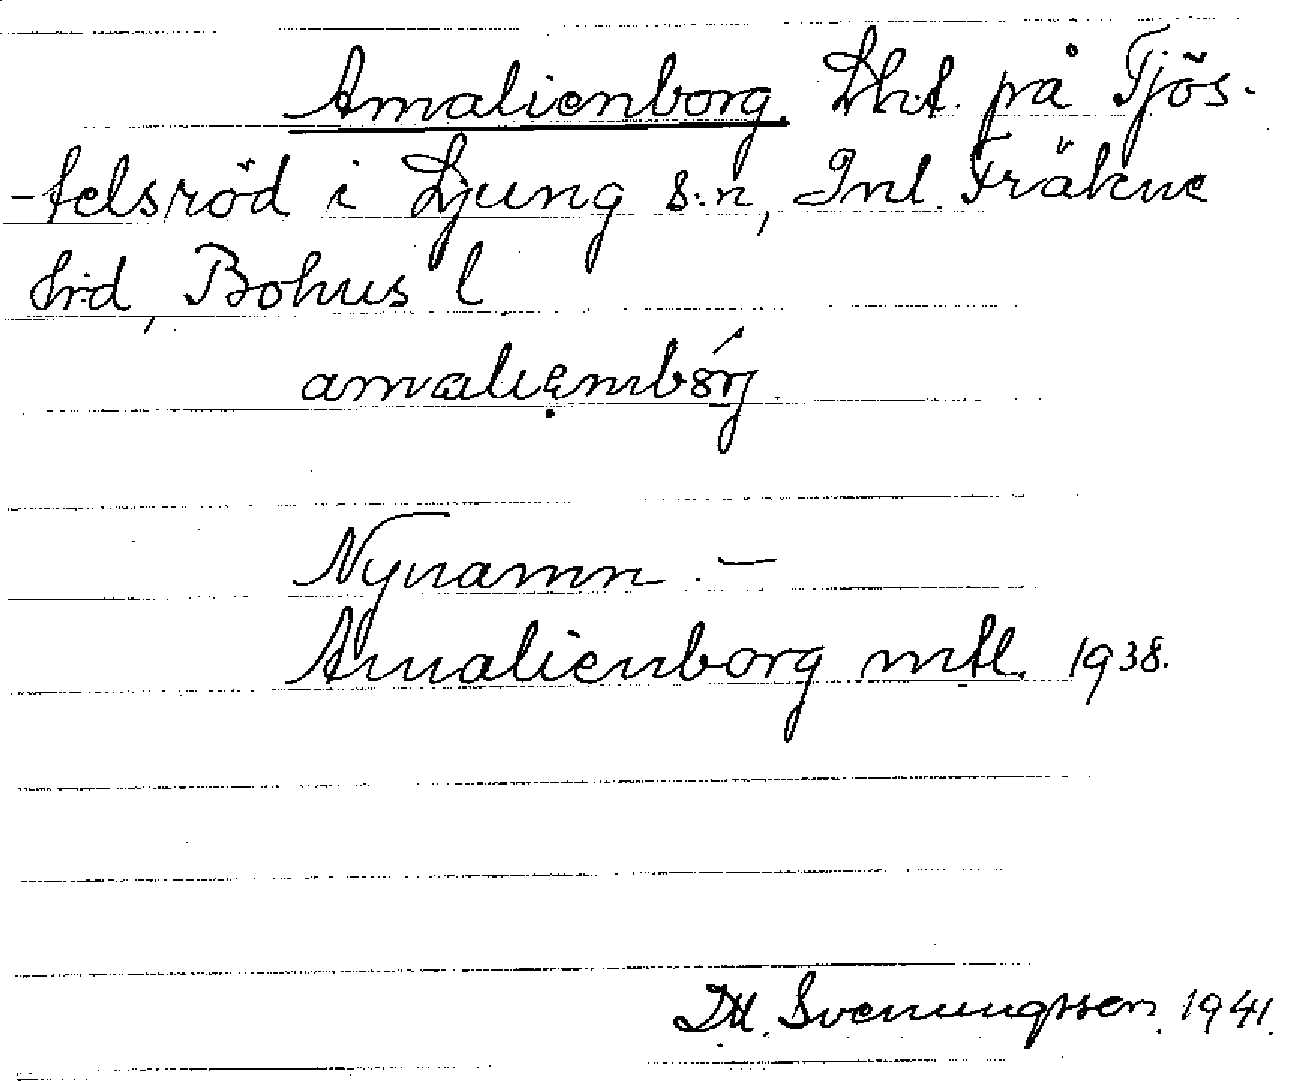 Amalienborg. Lht. på Tjös-
-felsröd i Ljung s:n, Inl. Fräkne
hrd, Bohus l
amaliembórg
Nynamn. –
Amalienborg mtl. 1938.
Svenungsson. 1941.